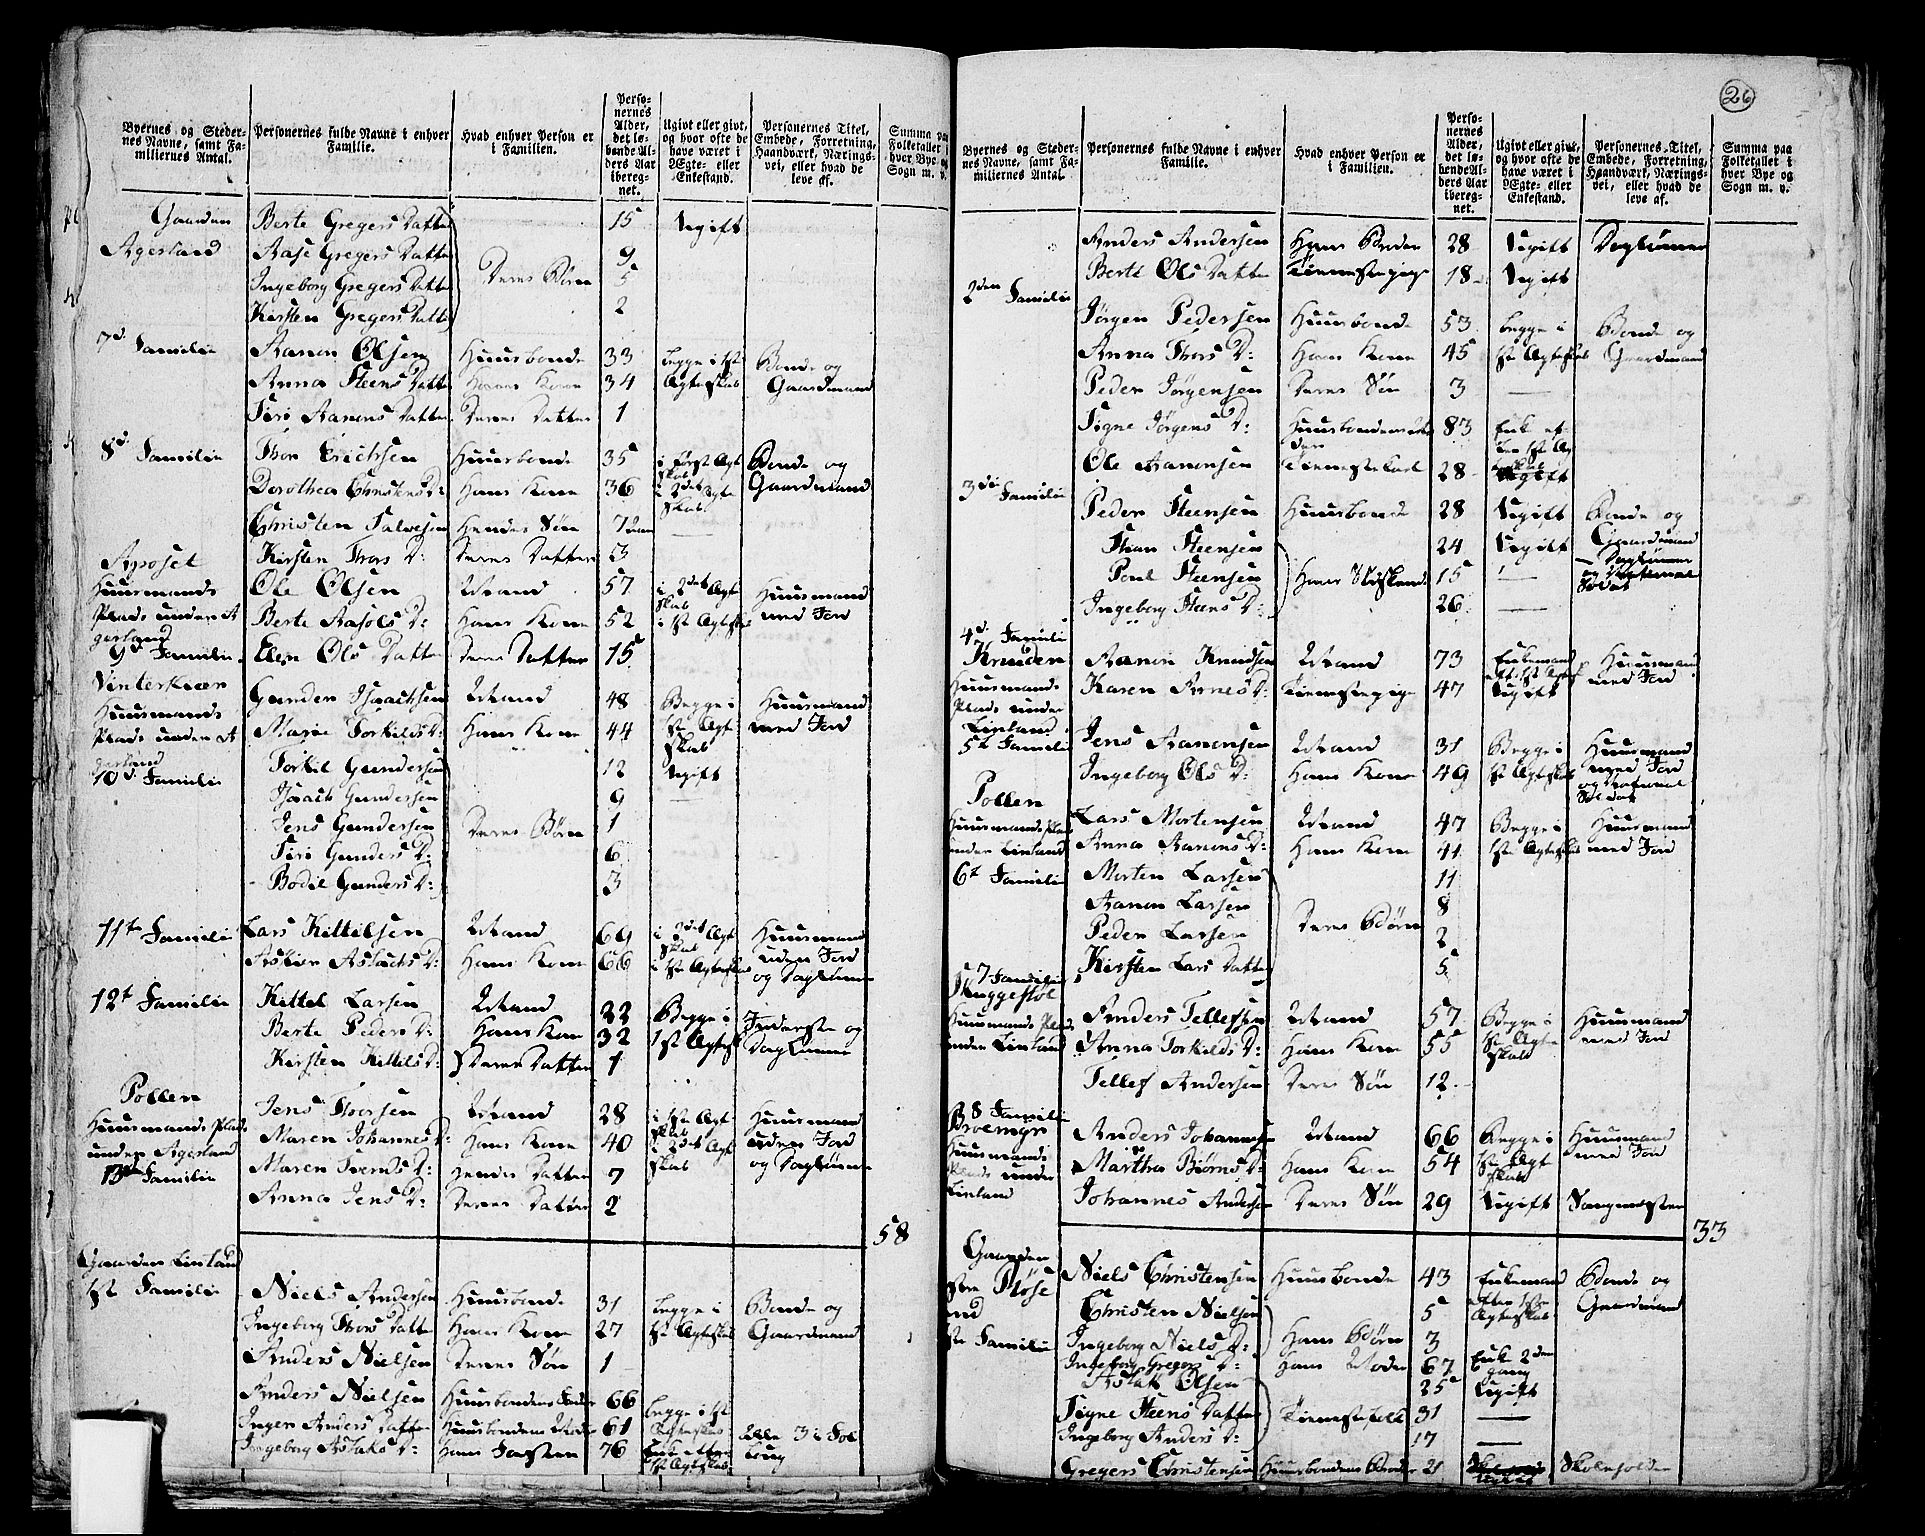 26
Byernes og Stedernes Navne, samt Familiernes Antal.
Personernes fulde Navne i enhver Familie.
Hvad enhver Person er i Familien.
Personernes Alder, det løbende Alders Aar iberegnet.
Ugivt eller givt, og hvor ofte de have været i Ægte- eller Enkestand.
Personernes Titel, Embede, Forretning, Haandværk, Næringsvei, eller hvad de leve af.
Summa paa Folketallet i hver Bye og Sogn m. v.
Gaarden Berte Gregers Datter 15 Ugift
Agerland Aase Gregers Datter 9
Ingeborg Gregers Datter Deres Børn 5
Kirsten Gregers Datter 2
7d Familie Aanon Olsen Huusbonde 33 begge i 1st Bonde og
Anna Steens Datter Hans Kone 34 Ægteskab Gaardmand
Siri Aanons Datter Deres Datter 1
8d Familie Thor Erichsen Huusbonde 35 i først Ægteskab Bonde og
Dorothea Christens D: Hans Kone 36 i 2det Ægteskab Gaardmand
Christen Salvesen Hendes Søn 7
Kirsten Thors D: Deres Datter 3
Aposet
Huusmands Ole Olsen Mand 57 i 2det Ægteskab Huusmand
Plads under Agerland Berte Aasols D: Hans Kone 52 i 1st Ægteskab med Jord
9d Familie Elen Ols Datter Deres Datter 15
Vinterkiær Gunder Isaachsen Mand 48 Begge i Huusmand
Huusmands Marie Torkilds D: Hans Kone 44 1st Ægteskab med Jord
Plads under Agerland
10d Familie Torkil Gundersen 12 Ugift
Isaach Gundersen 9
Jens Gundersen Deres Børn 1
Siri Gunders D: 6
Bodil Gunders D: 3
11te Familie Lars Kittilsen Mand 69 i 2det Ægteskab Huusmand
Askier Aslachs D: Hans Kone 66 i 1st Ægteskab uden Jord og Daglønner
12t Familie Kittel Larsen Mand 22 Begge i Inderste og
Berte Peders D: Hans Kone 32 1st Ægtesk Daglønner
Kirsten Kittils D: Deres Datter 1
Pollen Jens Thorsen Mand 28 i 1st Ægteskab Huusmand
Huusmands Plads Maren Johannes D: Hans Kone 40 i 2det Ægteskab uden Jord
under Agerland Maren Svends D: Hendes Datter 7 og Daglønner
13de Familie Anna Jens D: Deres Datter 2
58
Gaarden Linland
1st Familie Niels Andersen Huusbonde 31 begge i Bonde og
Ingeborg Thors Datter Hans Kone 27 1st Ægteskab Gaardmand
Anders Nielsen Deres Søn 1
Anders Nielsen Huusbondens Fader 66 begge i 1st
Inger Anders Datter Huusbondens Moder 61 Ægteskab Alle 3 i Fol
Ingeborg Aslaks D: Hans Faster 76 Enke efter 1st Ægteskab
Byernes og Stedernes Navne, samt Familiernes Antal.
Personernes fulde Navne i enhver Familie.
Hvad enhver Person er i Familien.
Personernes Alder, det løbende Alders Aar iberegnet.
Ugivt eller givt, og hvor ofte de have været i Ægte- eller Enkestand.
Personernes Titel, Embede, Forretning, Haandværk, Næringsvei, eller hvad de leve af.
Summa paa Folketallet i hver Bye og Sogn m. v.
Anders Andersen 28 Ugift Daglønner
Berte Ols Datter Tienestepige 18 Ugift
2den Familie Jørgen Pedersen Huusbonde 53 begge i Bonde og
Anna Thors D: Hans Kone 45 1st Ægteskab Gaardmand
Peder Jørgensen Deres Søn 3
Signe Jørgens D: Huusbondens Moder 83
Ole Aanonsen Tienestekarl 28 Ugift
3die Familie Peder Steensen Huusbonde 28 Ugift Bonde og Gaardmand
Steensen 24 Ugift Daglønner og National Soldat
Poul Steensen Hans Sødskende 15
Ingeborg Steens D: 26
4d Familie
Knuden Aanon Knudsen Mand 73 Enkemand Huusmand
Huusmands Karen Arnes D: Tienestepige 47 Ugift med Jord
Plads under
Linland
5te Familie Jens Aanonsen Mand 31 Begge i Huusmand
Ingeborg Ols D: Hans Kone 49 1st Ægteskab med Jord og National Soldat
Pollen
Huusmands Plads Lars Mortensen Mand 47 Begge i Huusmand
under Linland Anna Aanons D: Hans Kone 41 1st Ægteskab med Jord
6t Familie Morten Larsen 11
Aanon Larsen 8
Peder Larsen Deres Børn 2
Kirsten Lars Datter 5
7 Familie
Skuggestøl Anders Tellefsen Mand 57 Begge i Huusmand
Huusmands Plads Anna Torkilds D: Hans Kone 55 1st Ægteskab med Jord
under Linland Tellef Andersen Deres Søn 12
8 Familie
Anders Johannesen Mand 66 Begge i Huusmand
Huusmands Martha Biørns D: Hans Kone 54 1st Ægteskab med Jord
Plads under Johannes Andersen Deres Søn 29 Ugift
Linland
33
Gaarden Niels Christensen Huusbonde 43 Enkemand Bonde og
Christen Nielsen 5 efter 1ste Ægteskab Gaardmand
1ste Familie Ingeborg Niels D: Hans Børn 3
Ingeborg Gregers D: Hans Moder 67 Enke 2den gang
Aslak Olsen 25 Ugift
Signe Steens Datter Tienestefolk 31
Ingeborg Anders D: 17
Gregers Christensen Huusbondens Broder 21 Skoleholder